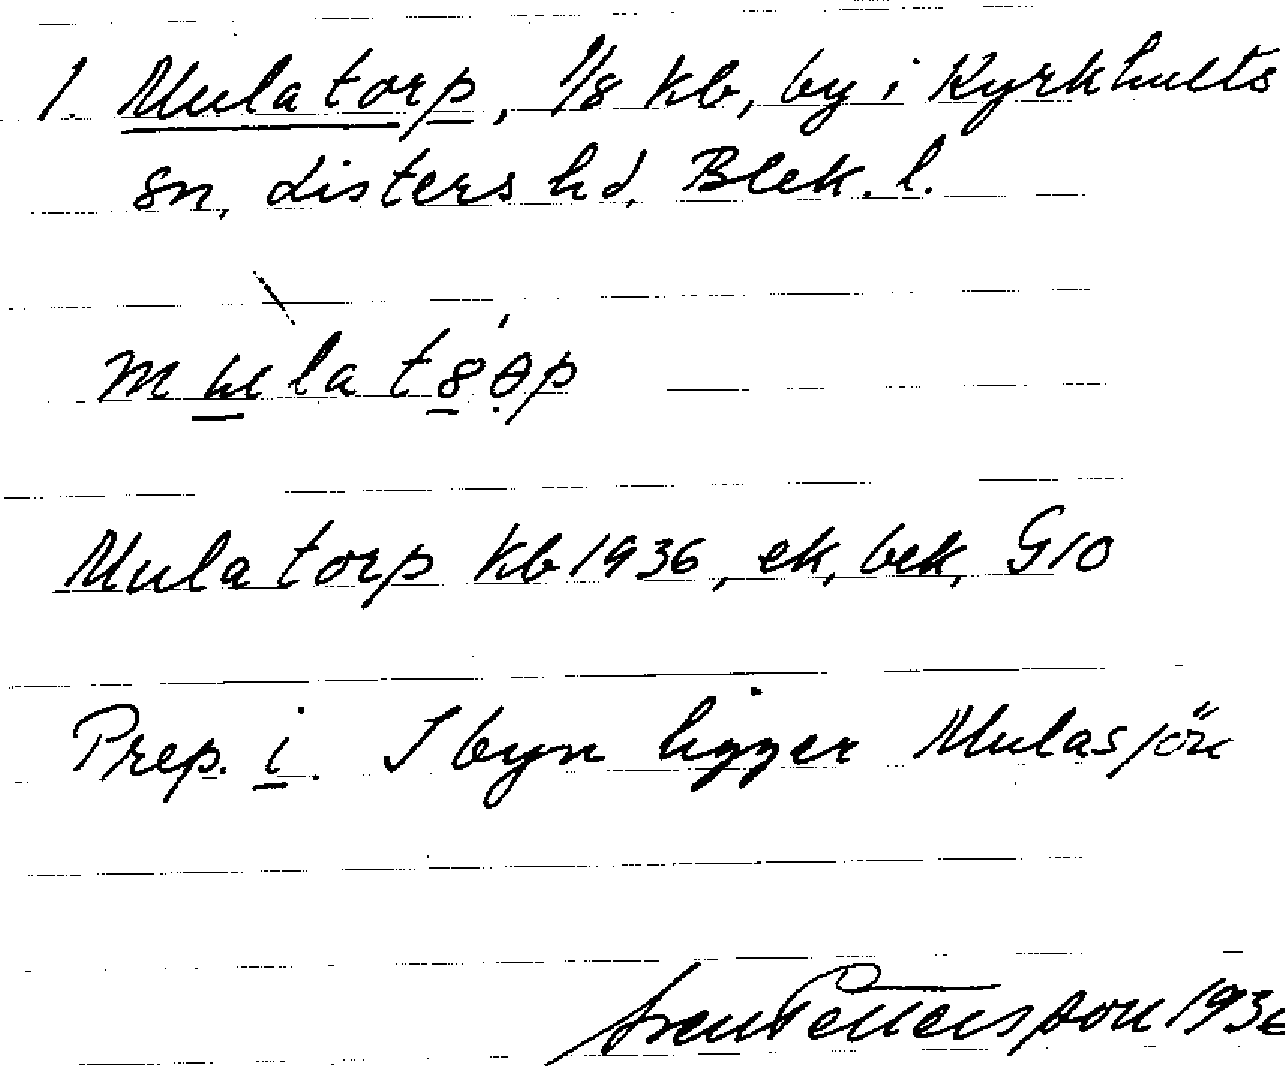 1. Mulatorp, 1/8 kb, by i Kyrkhults
sn, Listers hd, Blek. l.
Mulatorp kb 1936, ek, bek, G10
Prep. i. I byn ligger Mulasjön
Pettersson 1936